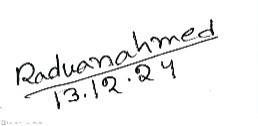 Raduanahmed
13.12.24